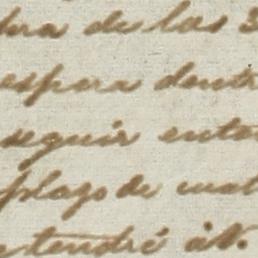 de las
espera dentr
seguir enta
plazo de cuat
tendré á V.